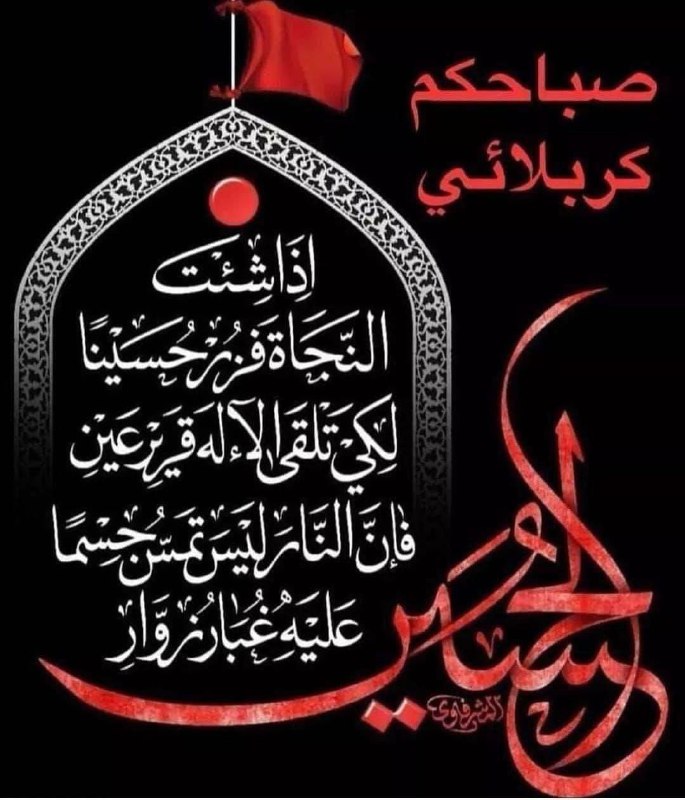 صباحكم
كربلائي
إذَا شِئْت
النَّجَاةَ فَزُرْ حُسَيْنًا
لِكَيْ تَلْقَى الآءلَه قَرِيرِ عَيْنِ
فَإنَّ النَّارَ لَيْسَ تَمَسُّ جِسْمًا
عَلَيْهِ غُبَارُ زوَّارِ
الحسين
الشرفاوي